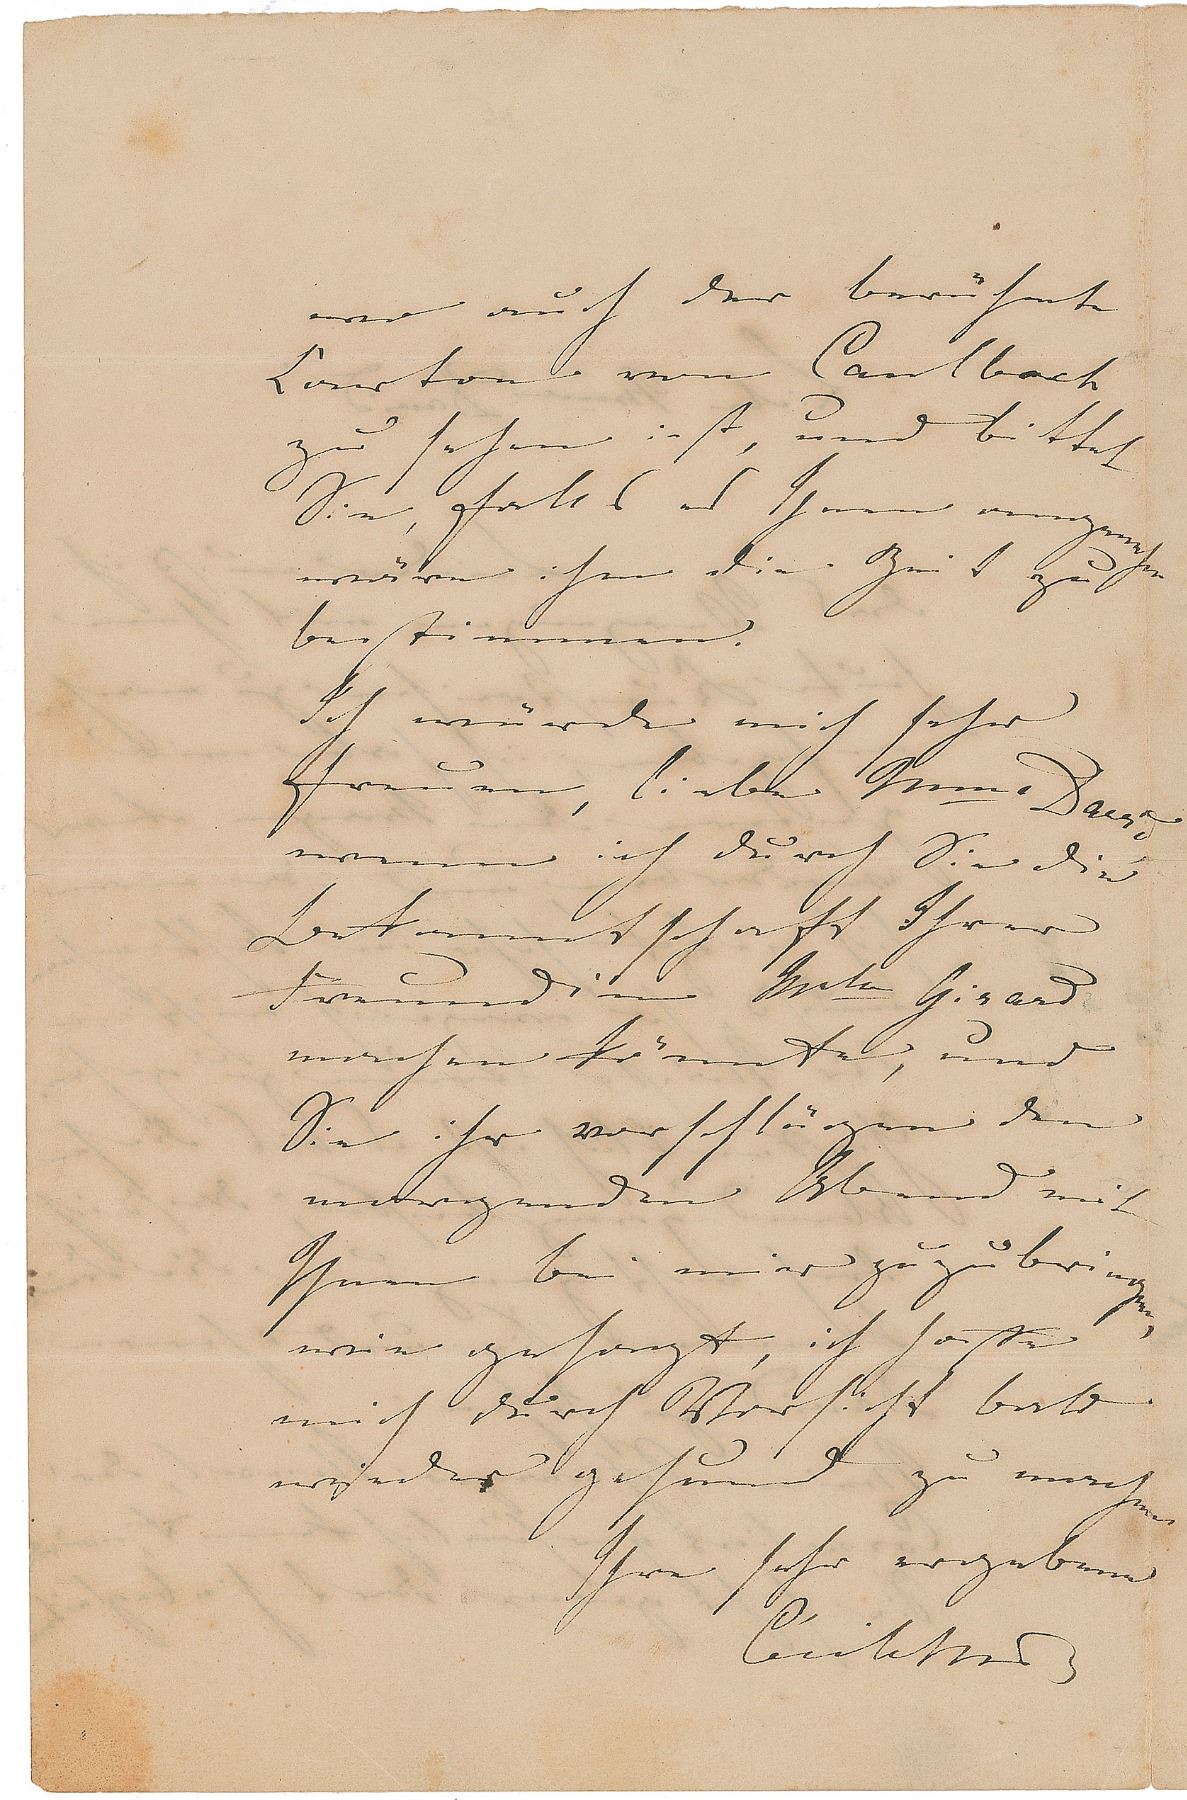 wo auch der berühmte
Carton von Caulbach
zu sehen ist, und bittet
Sie, falls es Ihnen angenehm
wäre ihm die Zeit zu
bestimmen.
Ich würde mich sehr
freuen, liebe Mme David
wenn ich durch Sie die
Bekanntschaft Ihrer
Freundin Mele Girard
machen könnte, und
Sie ihr vorschlügen den
morgenden Abend mit
Ihnen bei mir zuzubringen,
wie gesagt, ich hoffe
mich durch Vorsicht bald
wieder gesund zu machen
Ihre sehr ergebene